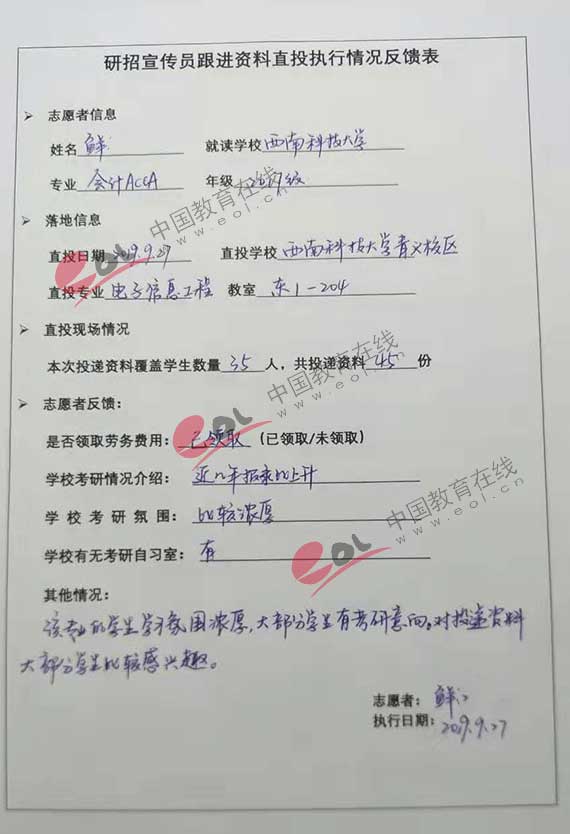 研招宣传员跟进资料直投执行情况反馈表
志愿者信息
姓名 鲜 就读学校 西南科技大学
专业 会计ACCA 年级 级
落地信息
直投日期 2019.9.27 直投学校 西南科技大学青义校区
直投专业 电子信息工程 教室 东1-204
直投现场情况
本次投递资料覆盖学生数量 35 人，共投递资料 45 份
志愿者反馈：
是否领取劳务费用： 已领取 （已领取/未领取）
学校考研情况介绍： 近几年报录比上升
学校考研氛围： 比较浓厚
学校有无考研自习室： 有
其他情况：
该专业的学生学习氛围浓厚，大部分学生有考研意向。对投递资料
大部分学生比较感兴趣。
志愿者： 鲜
执行日期： 2019.9.27
eol 中国教育在线
www.eol.cn
eol 中国教育在线
www.eol.cn
eol 中国教育在线
www.eol.cn